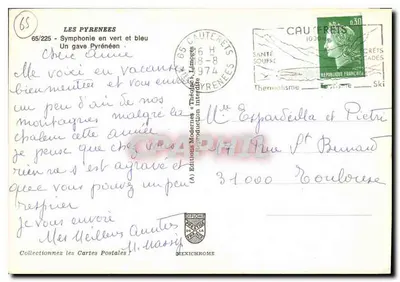 65
LES PYRENEES
65/225 - Symphonie en vert et bleu
Un gave Pyrénéen
Chère Anne
Me voici en vacances
bienmeritées et vous envoie
un peu d'air de nos
montagnes malgré la
chaleur cette année
Je pense que chez vous
s'est agravé et
que vous pouvez un peu
respirer
Je vous envoie
Mes Meilleurs Amitiés
M. Massip
Collectionnez les Cartes Postales !
(A) Editions Modernes "Théojac", Limoges
Reproduction interdite
MEXICHROME
65 CAUTERETS
16 H
8-8
1974
PYRENEES
CAUTERETS
SANTÉ
SOURCE
Thermalisme
Ski
0,30
REPUBLIQUE FRANÇAISE
Mlle et Pietri
Rue St Bernard
31000 Toulouse